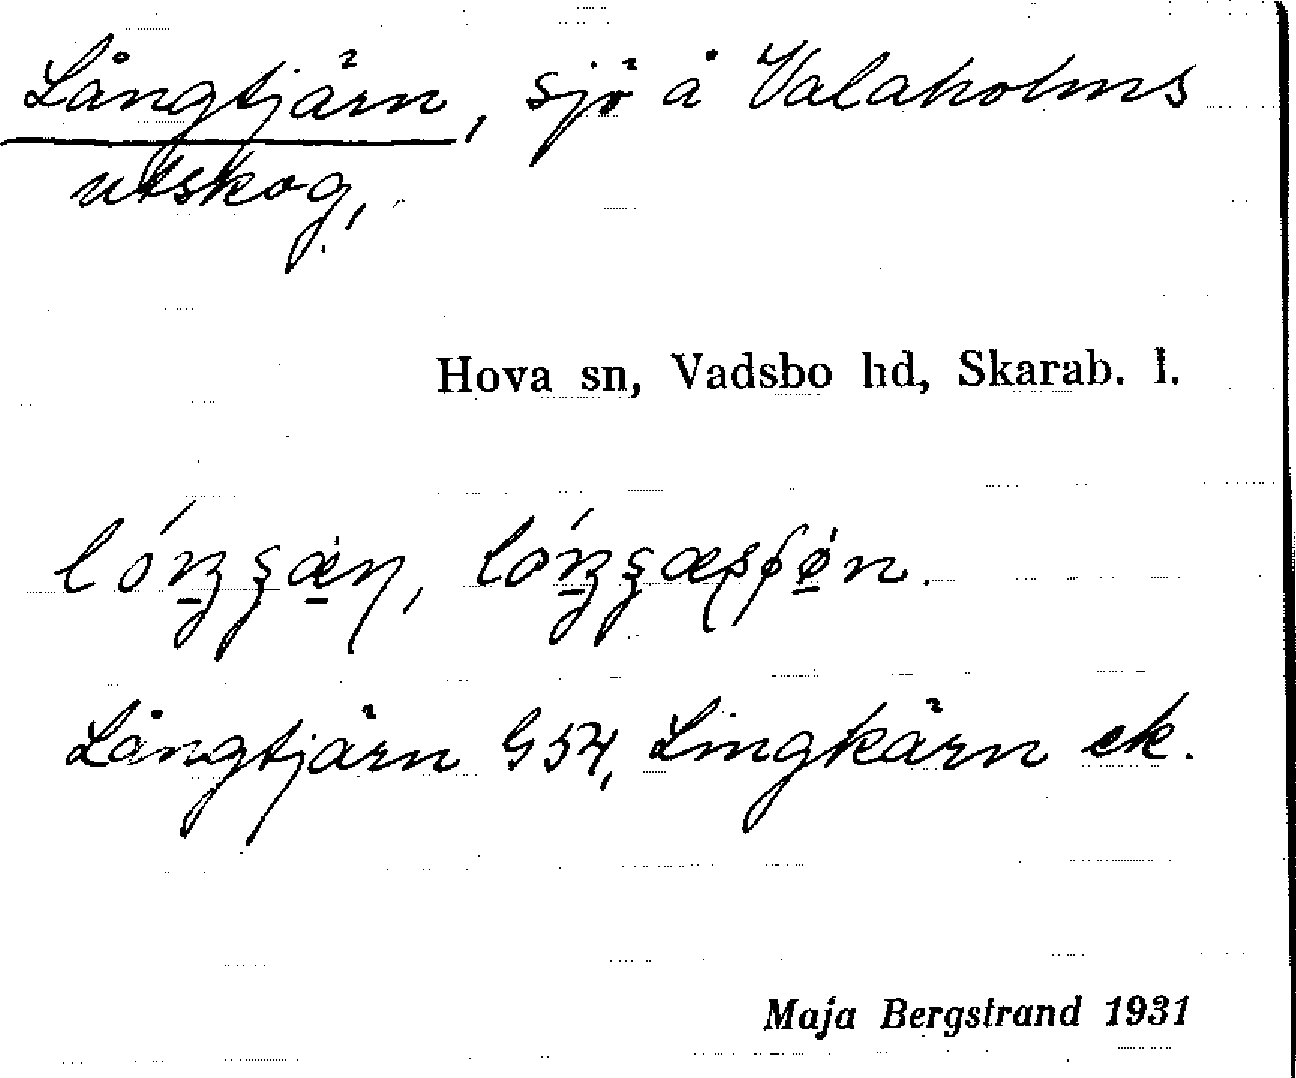 Långtjärn, sjö å Valaholms
utskog,
Hova sn, Vadsbo hd, Skarab. l.
Långtjärn G54, Lingkärn ek.
Maja Bergstrand 1931